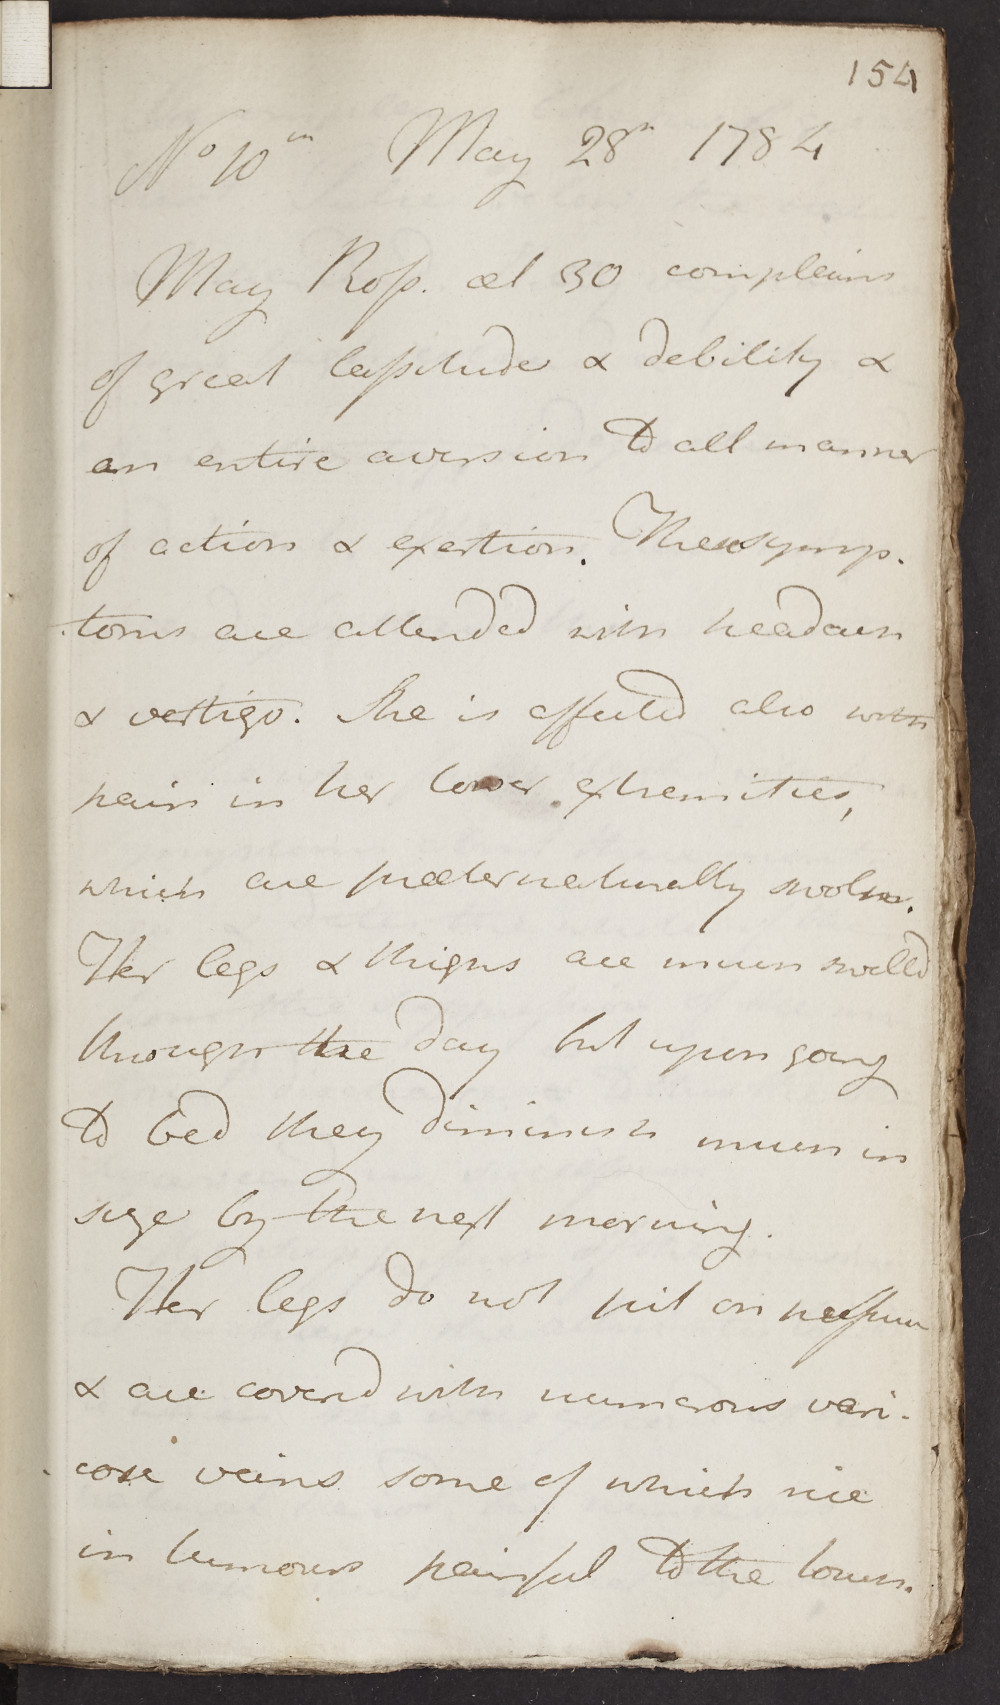 154
No 10th May 28th 1784
May Ross. æt 30 complains
of great lassitude & debility &
an entire aversion to all manner
of action & exertion. These symp-
toms are attended with headach
& vertigo. She is affected also with
pain in her lower extremities,
which are præternaturally swoln.
Her legs & thighs are much swelld
through the day but upon going
to bed they diminish much in
size by the next morning.
Her legs do not pit on pressure
& are covered with numerous vari-
cose veins some of which rise
in tumours painful to the touch.